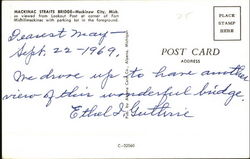 MACKINAC STRAITS BRIDGE—Mackinaw City, Mich.
as viewed from Lookout Post at corner of Fort
Michilimackinac with parking lot in the foreground.
Dearest May—
Sept. 22-1969,
POST CARD
ADDRESS
PLACE
STAMP
HERE
We drove up to have another
view of this wonderful bridge.
Ethel I Guthrie
C-32060